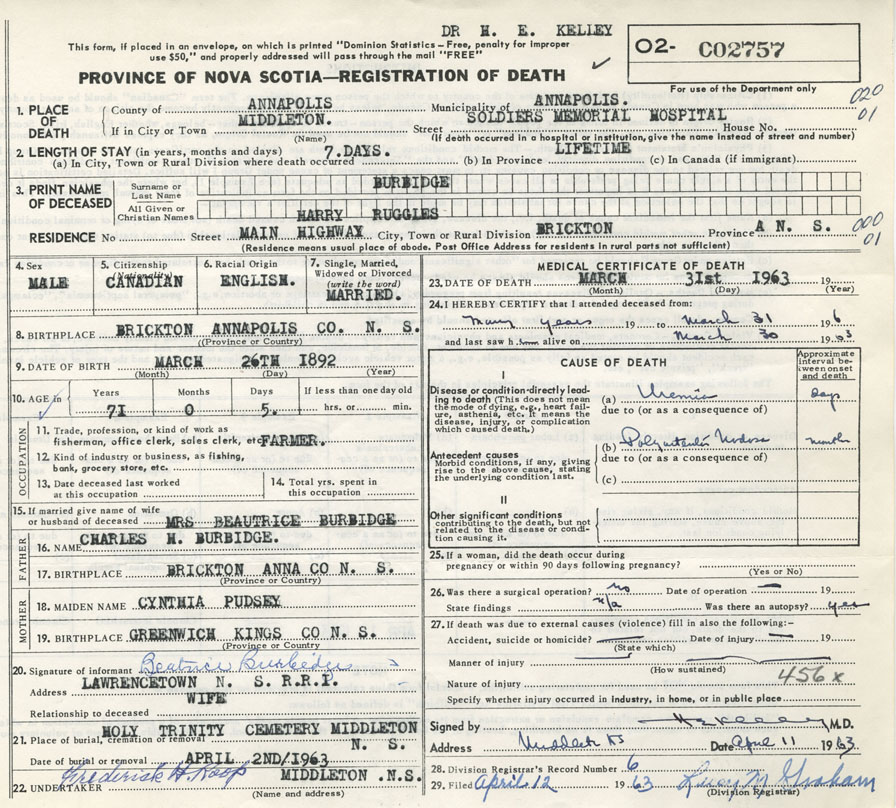 DR H. E. KELLEY
This form, if placed in an envelope, on which is printed "Dominion Statistics - Free, penalty for improper
use $50," and properly addressed will pass through the mail "FREE"
O2- C02757
PROVINCE OF NOVA SCOTIA—REGISTRATION OF DEATH
For use of the Department only
020
01
1. PLACE OF DEATH
County of ANNAPOLIS Municipality of ANNAPOLIS.
If in City or Town MIDDLETON. Street SOLDIERS MEMORIAL HOSPITAL House No.
(Name) (If death occurred in a hospital or institution, give the name instead of street and number)
2. LENGTH OF STAY (in years, months and days) 7.DAYS. LIFETIME
(a) In City, Town or Rural Division where death occurred (b) In Province (c) In Canada (if immigrant)
3. PRINT NAME OF DECEASED
Surname or Last Name BURBIDGE
All Given or Christian Names HARRY RUGGLES
RESIDENCE No Street MAIN HIGHWAY City, Town or Rural Division BRICKTON Province A N. S.
000
01
(Residence means usual place of abode. Post Office Address for residents in rural parts not sufficient)
4. Sex MALE
5. Citizenship (Nationality) CANADIAN
6. Racial Origin ENGLISH.
7. Single, Married, Widowed or Divorced (write the word) MARRIED.
8. BIRTHPLACE BRICKTON ANNAPOLIS CO. N. S.
(Province or Country)
9. DATE OF BIRTH MARCH 26TH 1892
(Month) (Day) (Year)
10. AGE in Years 71 Months 0 Days 5. If less than one day old hrs. or min.
OCCUPATION
11. Trade, profession, or kind of work as
fisherman, office clerk, sales clerk, etc FARMER.
12. Kind of industry or business, as fishing,
bank, grocery store, etc.
13. Date deceased last worked at this occupation
14. Total yrs. spent in this occupation
15. If married give name of wife
or husband of deceased MRS BEAUTRICE BURBIDGE
FATHER
16. NAME CHARLES H. BURBIDGE.
17. BIRTHPLACE BRICKTON ANNA CO N. S.
(Province or Country)
MOTHER
18. MAIDEN NAME CYNTHIA PUDSEY
19. BIRTHPLACE GREENWICH KINGS CO N. S.
(Province or Country
20. Signature of informant Beatrice Burbidge
Address LAWRENCETOWN N. S. R.R.I.
Relationship to deceased WIFE
21. Place of burial, cremation or removal HOLY TRINITY CEMETERY MIDDLETON
N. S.
Date of burial or removal APRIL 2ND/1963
22. UNDERTAKER Frederick H. Roop MIDDLETON .N.S.
(Name and address)
MEDICAL CERTIFICATE OF DEATH
23. DATE OF DEATH MARCH 31st 1963
(Month) (Day) (Year)
24. I HEREBY CERTIFY that I attended deceased from:
many years 19 to March 31 196
and last saw h alive on March 30 1963
CAUSE OF DEATH
Approximate interval between onset and death
I
Disease or condition directly leading to death (This does not mean the mode of dying, e.g., heart failure, asthenia, etc. It means the disease, injury, or complication which caused death.)
(a) Uremia days
due to (or as a consequence of)
Antecedent causes
Morbid conditions, if any, giving rise to the above cause, stating the underlying condition last.
(b) Polyarteritis Nodosa months
due to (or as a consequence of)
(c)
II
Other significant conditions
contributing to the death, but not related to the disease or condition causing it.
25. If a woman, did the death occur during
pregnancy or within 90 days following pregnancy?
(Yes or No)
26. Was there a surgical operation? no Date of operation — 19
State findings n/a Was there an autopsy? yes
27. If death was due to external causes (violence) fill in also the following:-
Accident, suicide or homicide? Date of injury — 19
(State which)
Manner of injury
(How sustained)
Nature of injury 456x
Specify whether injury occurred in industry, in home, or in public place
Signed by H E Kelley M.D.
Address Middleton NS Date April 11 1963
28. Division Registrar's Record Number 6
29. Filed April 12 1963 Graham
(Division Registrar)